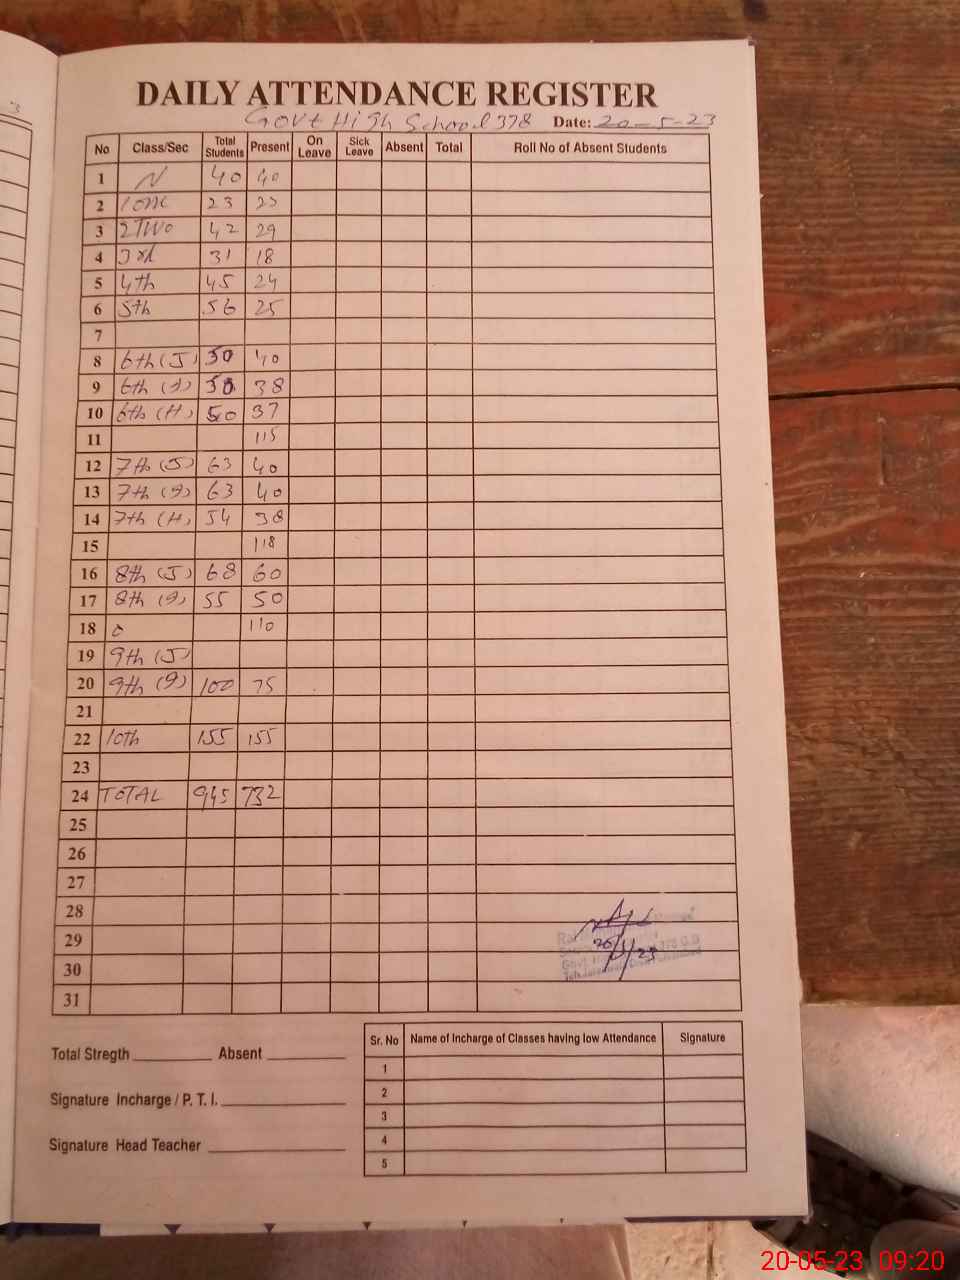 3
DAILY ATTENDANCE REGISTER
Govt High School 378 Date: 20-5-23
No Class/Sec Total Students Present On Leave Sick Leave Absent Total Roll No of Absent Students
1 N 40 40
2 1 one 23 23
3 2 Two 42 29
4 3rd 31 18
5 4th 45 24
6 5th 56 25
7
8 6th (J) 50 40
9 6th (I) 50 38
10 6th (H) 50 37
11 115
12 7th (J) 63 40
13 7th (I) 63 40
14 7th (H) 54 38
15 118
16 8th (J) 68 60
17 8th (I) 55 50
18 110
19 9th (J)
20 9th (I) 100 75
21
22 10th 155 155
23
24 TOTAL 945 732
25
26
27
28
29
30
31
Total Stregth Absent
Signature Incharge / P. T. I.
Signature Head Teacher
Sr. No Name of Incharge of Classes having low Attendance Signature
1
2
3
4
5
20-05-23 09:20